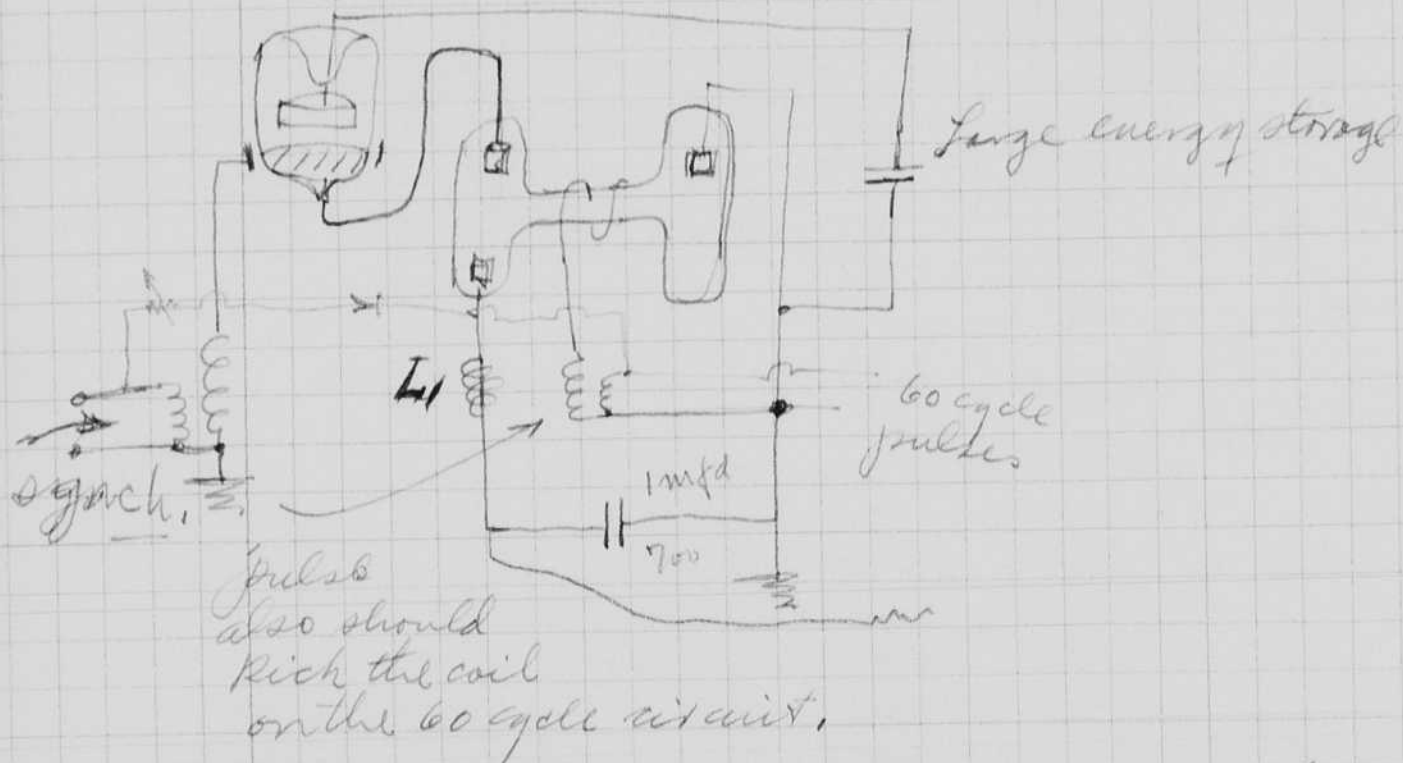 Large energy storage
L1
60 cycle
pulses
1mfd
700
synch.
pulse
also should
kick the coil
on the 60 cycle circuit.